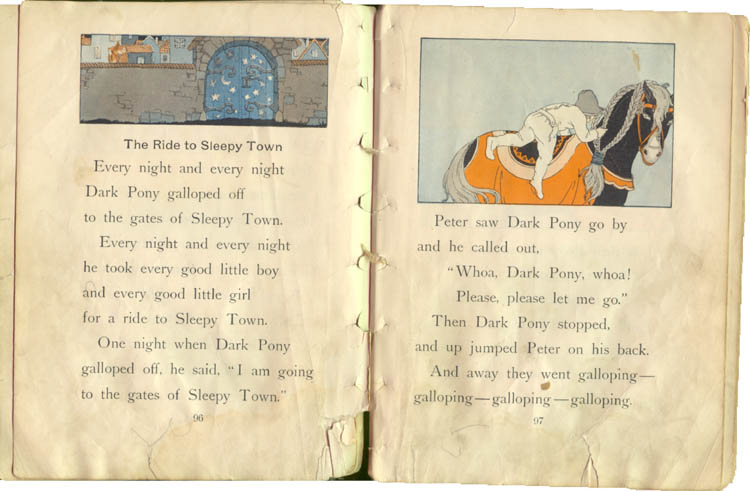 The Ride to Sleepy Town
Every night and every night
Dark Pony galloped off
to the gates of Sleepy Town.
Every night and every night
he took every good little boy
and every good little girl
for a ride to Sleepy Town.
One night when Dark Pony
galloped off, he said, "I am going
to the gates of Sleepy Town."
96
Peter saw Dark Pony go by
and he called out,
"Whoa, Dark Pony, whoa!
Please, please let me go."
Then Dark Pony stopped,
and up jumped Peter on his back.
And away they went galloping—
galloping—galloping—galloping.
97